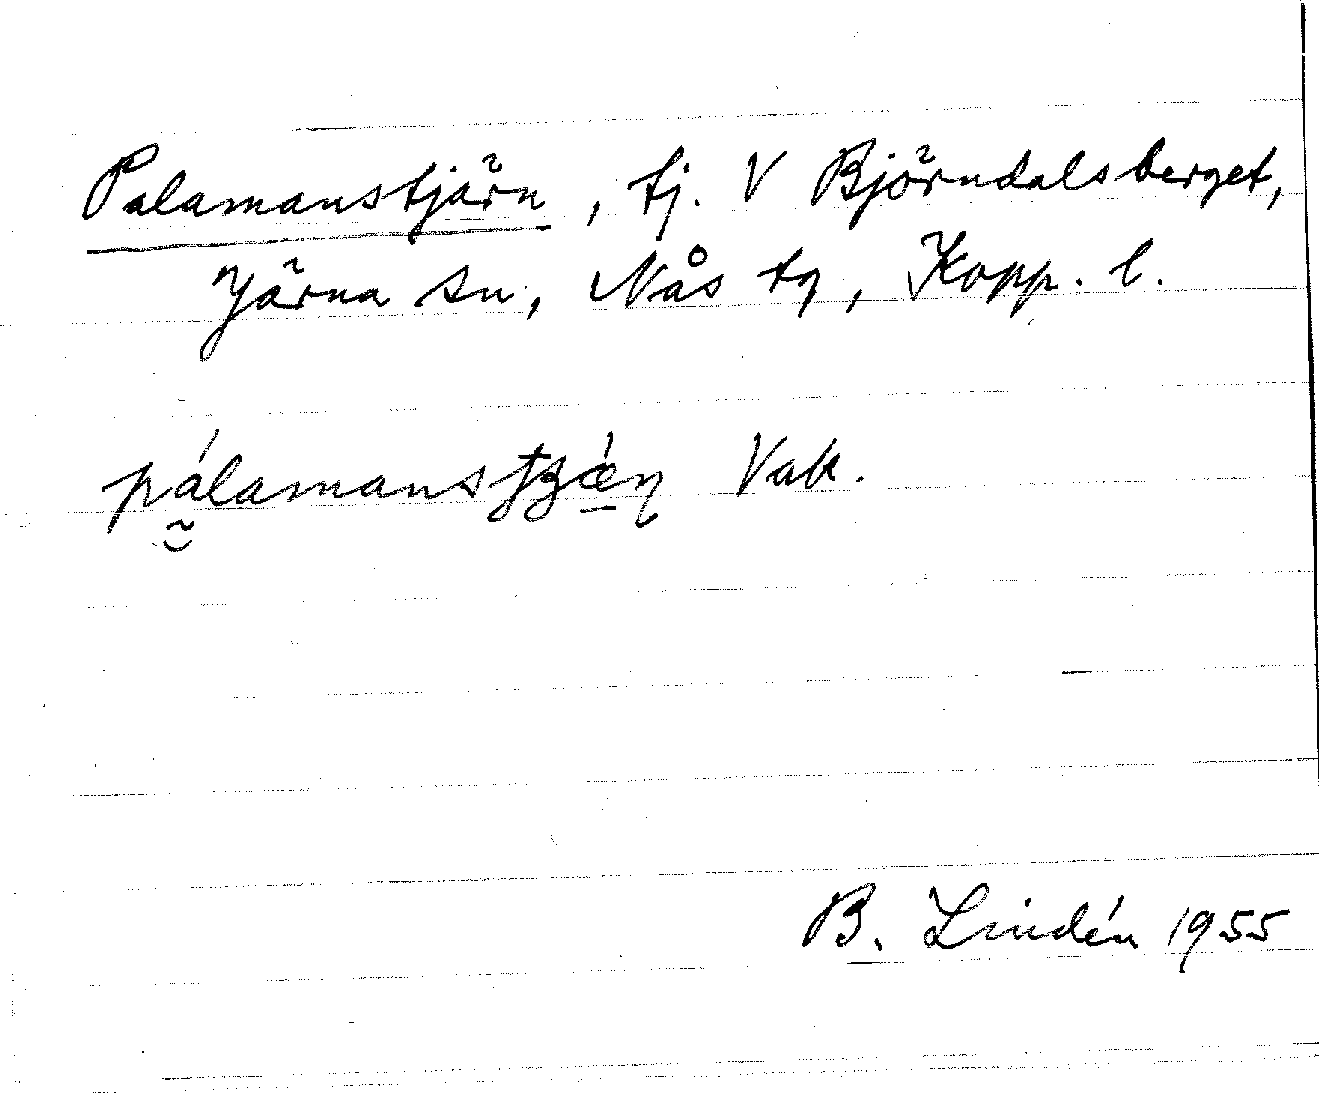 Palamanstjärn, tj. V Björndalsberget,
Järna sn, Nås tg, Kopp. l.
Vak.
B. Lindén 1955